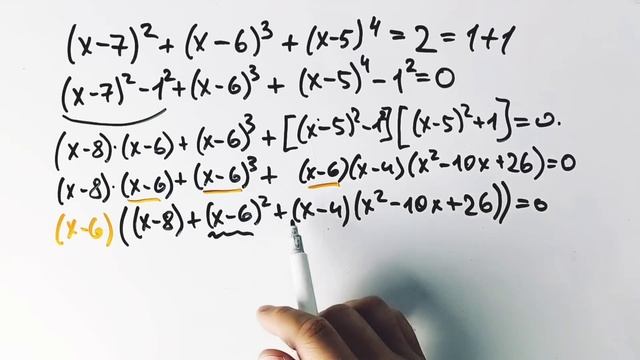 (x-7)² + (x-6)³ + (x-5)⁴ = 2 = 1+1
(x-7)² - 1² + (x-6)³ + (x-5)⁴ - 1² = 0
(x-8)·(x-6) + (x-6)³ + [(x-5)² - 1²][(x-5)² + 1] = 0.
(x-8)·(x-6) + (x-6)³ + (x-6)(x-4)(x² - 10x + 26) = 0
(x-6)((x-8) + (x-6)² + (x-4)(x² - 10x + 26)) = 0